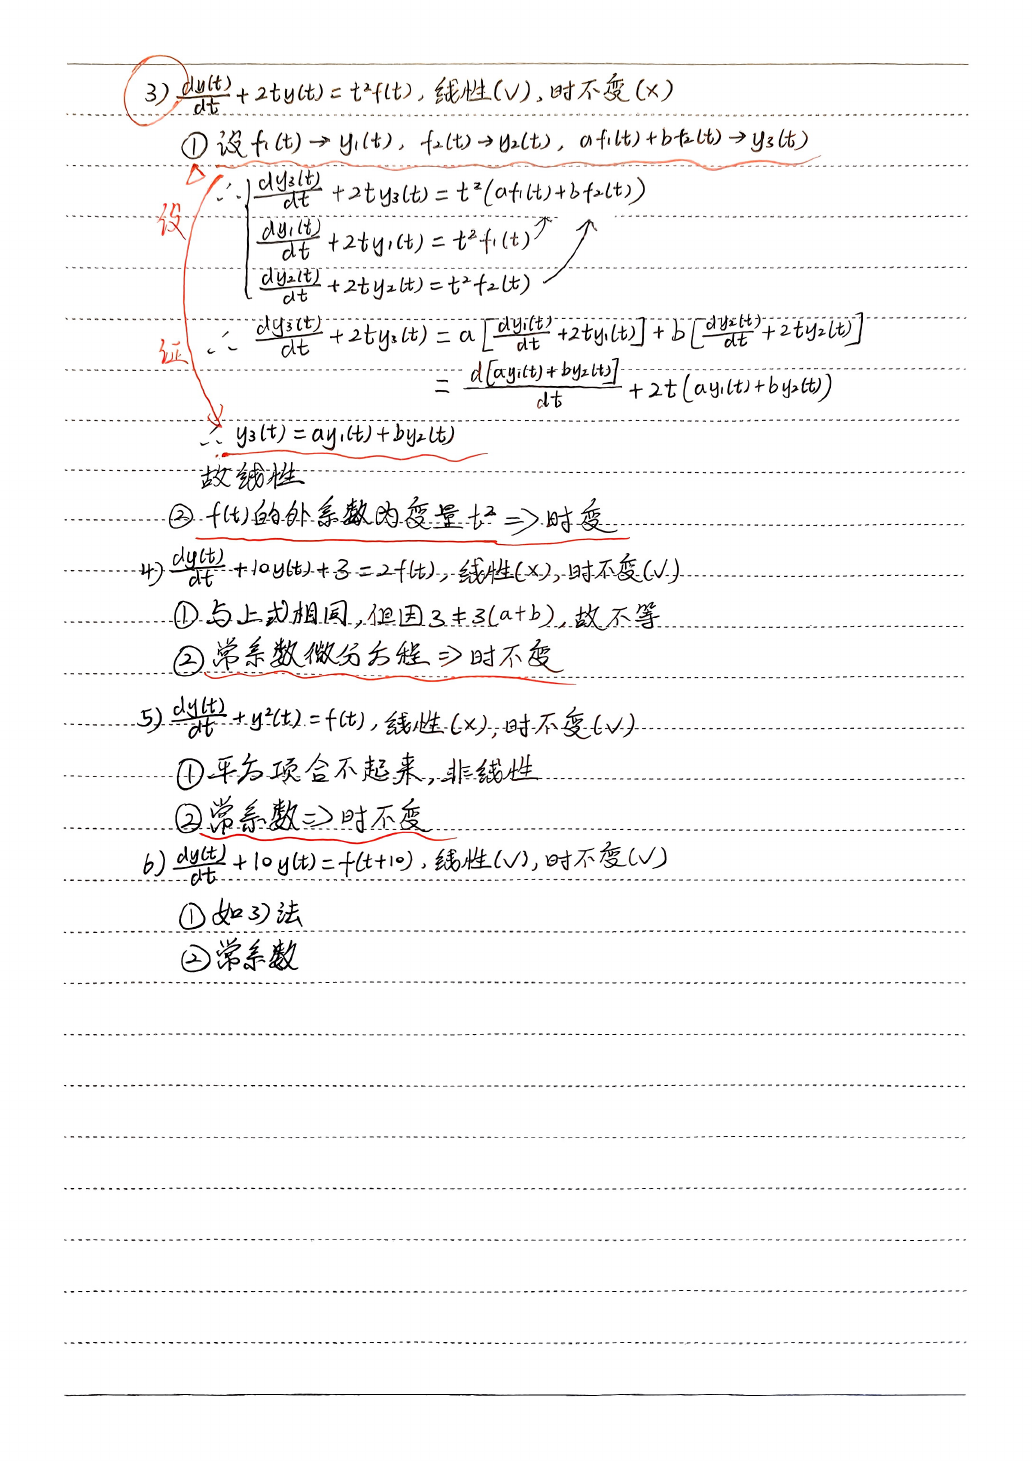 3) dy(t)/dt + 2ty(t) = t²f(t), 线性(√), 时不变(×)
① 设 f₁(t) → y₁(t), f₂(t) → y₂(t), af₁(t)+bf₂(t) → y₃(t)
∴ dy₃(t)/dt + 2ty₃(t) = t²(af₁(t)+bf₂(t))
设 dy₁(t)/dt + 2ty₁(t) = t²f₁(t)
dy₂(t)/dt + 2ty₂(t) = t²f₂(t)
证 ∴ dy₃(t)/dt + 2ty₃(t) = a[dy₁(t)/dt + 2ty₁(t)] + b[dy₂(t)/dt + 2ty₂(t)]
= d[ay₁(t)+by₂(t)]/dt + 2t(ay₁(t)+by₂(t))
∴ y₃(t) = ay₁(t)+by₂(t)
故线性
② f(t)的外系数为变量 t² => 时变
4) dy(t)/dt + 10y(t) + 3 = 2f(t), 线性(×), 时不变(√)
① 与上式相同, 但因 3 ≠ 3(a+b), 故不等
② 常系数微分方程 => 时不变
5) dy(t)/dt + y²(t) = f(t), 线性(×), 时不变(√)
① 平方项合不起来, 非线性
② 常系数 => 时不变
6) dy(t)/dt + 10y(t) = f(t+10), 线性(√), 时不变(√)
① 如3)法
② 常系数